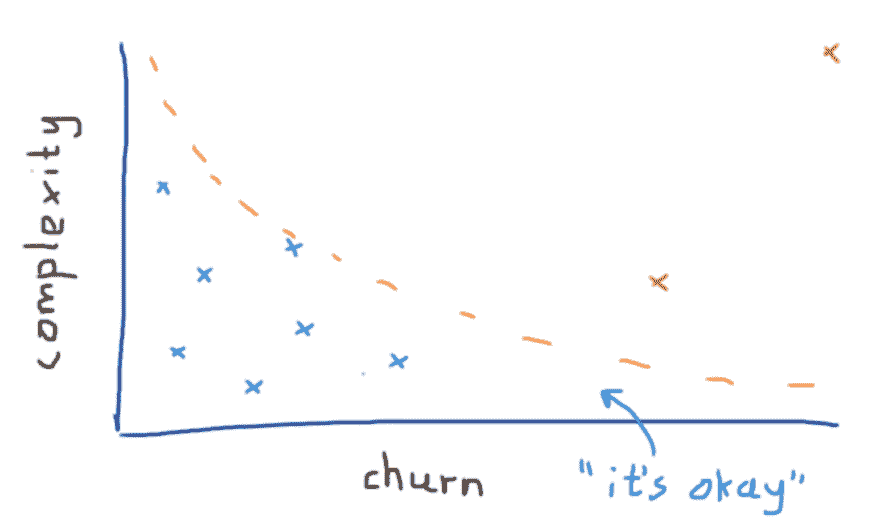 complexity
churn
"it's okay"